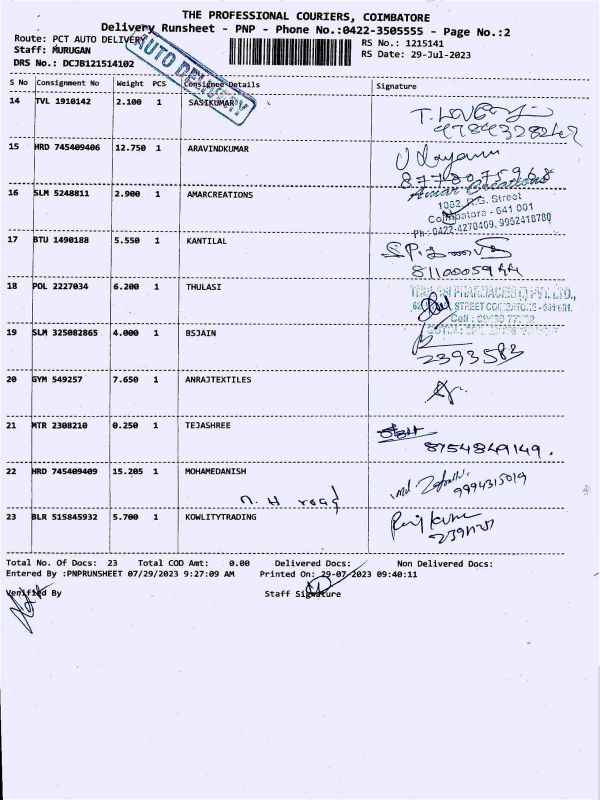 THE PROFESSIONAL COURIERS, COIMBATORE
Delivery Runsheet - PNP - Phone No.:0422-3505555 - Page No.:2
Route: PCT AUTO DELIVERY RS No.: 1215141
Staff: MURUGAN RS Date: 29-Jul-2023
DRS No.: DCJB121514102
AUTO DELIVERY
S No Consignment No Weight PCS Consignee Details Signature
14 TVL 1910142 2.100 1 SASIKUMAR
15 HRD 745409406 12.750 1 ARAVINDKUMAR
8778075968
16 SLM 5248811 2.900 1 AMARCREATIONS
Amar Creations
1082, R.G. Street
Coimbatore - 641 001
Ph: 0422-4270409, 9952418780
17 BTU 1490188 5.550 1 KANTILAL
18 POL 2227034 6.200 1 THULASI
STREET COIMBATORE - 641 001.
19 SLM 325082865 4.000 1 BSJAIN
2393583
20 GYM 549257 7.650 1 ANRAJTEXTILES
21 MTR 2308210 0.250 1 TEJASHREE
8754849149.
22 HRD 745409409 15.205 1 MOHAMEDANISH
9994315019
N. H road
23 BLR 515845932 5.700 1 KOWLITYTRADING
Total No. Of Docs: 23 Total COD Amt: 0.00 Delivered Docs: Non Delivered Docs:
Entered By :PNPRUNSHEET 07/29/2023 9:27:09 AM Printed On: 29-07-2023 09:40:11
Verified By Staff Signature